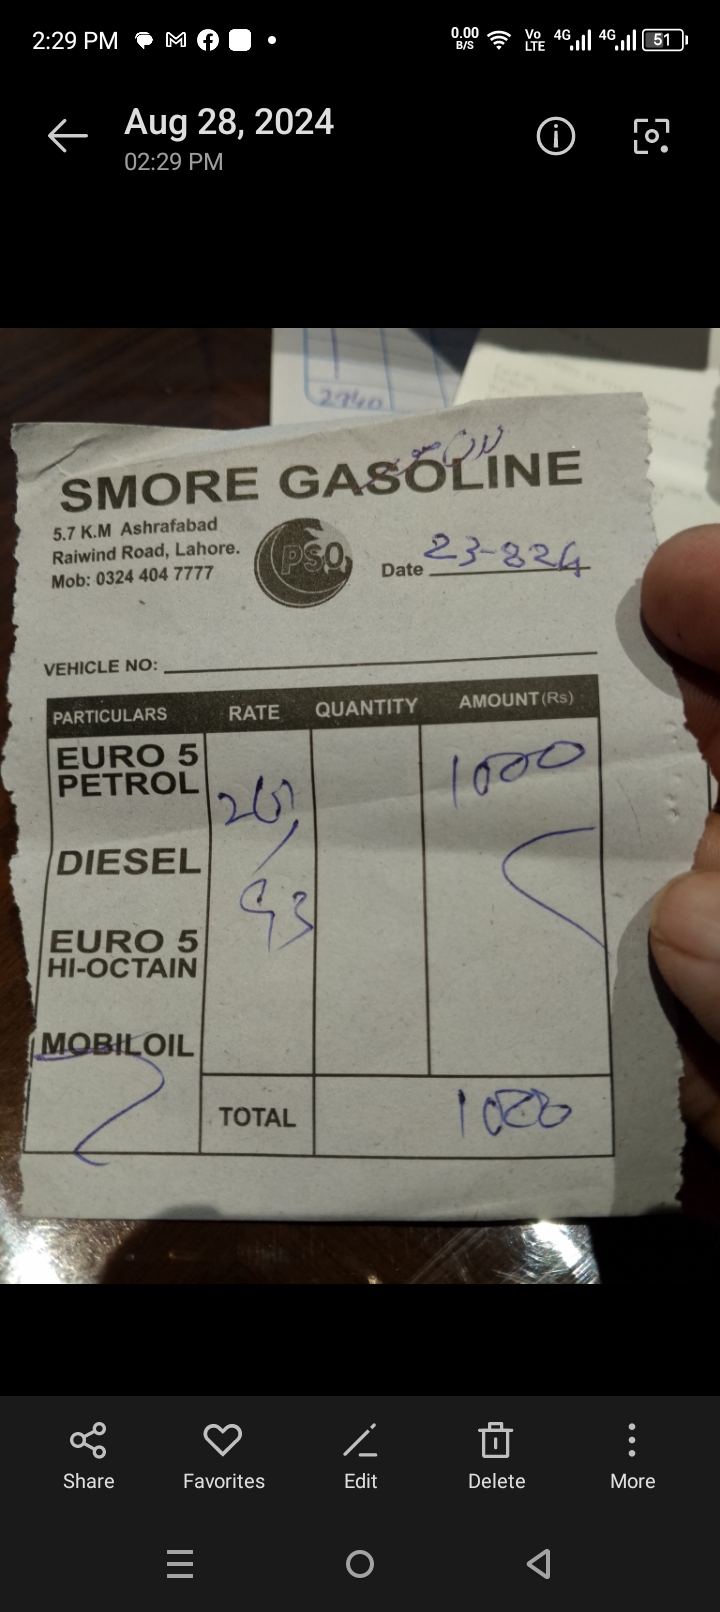 2:29 PM
0.00 B/S Vo LTE 4G 4G 51
Aug 28, 2024
02:29 PM
2940
SMORE GASOLINE
5.7 K.M Ashrafabad
Raiwind Road, Lahore.
Mob: 0324 404 7777
PSO
Date 23-824
VEHICLE NO:
PARTICULARS RATE QUANTITY AMOUNT (Rs)
EURO 5
PETROL 1000
DIESEL
93
EURO 5
HI-OCTAIN
MOBILOIL
TOTAL 1000
Share Favorites Edit Delete More